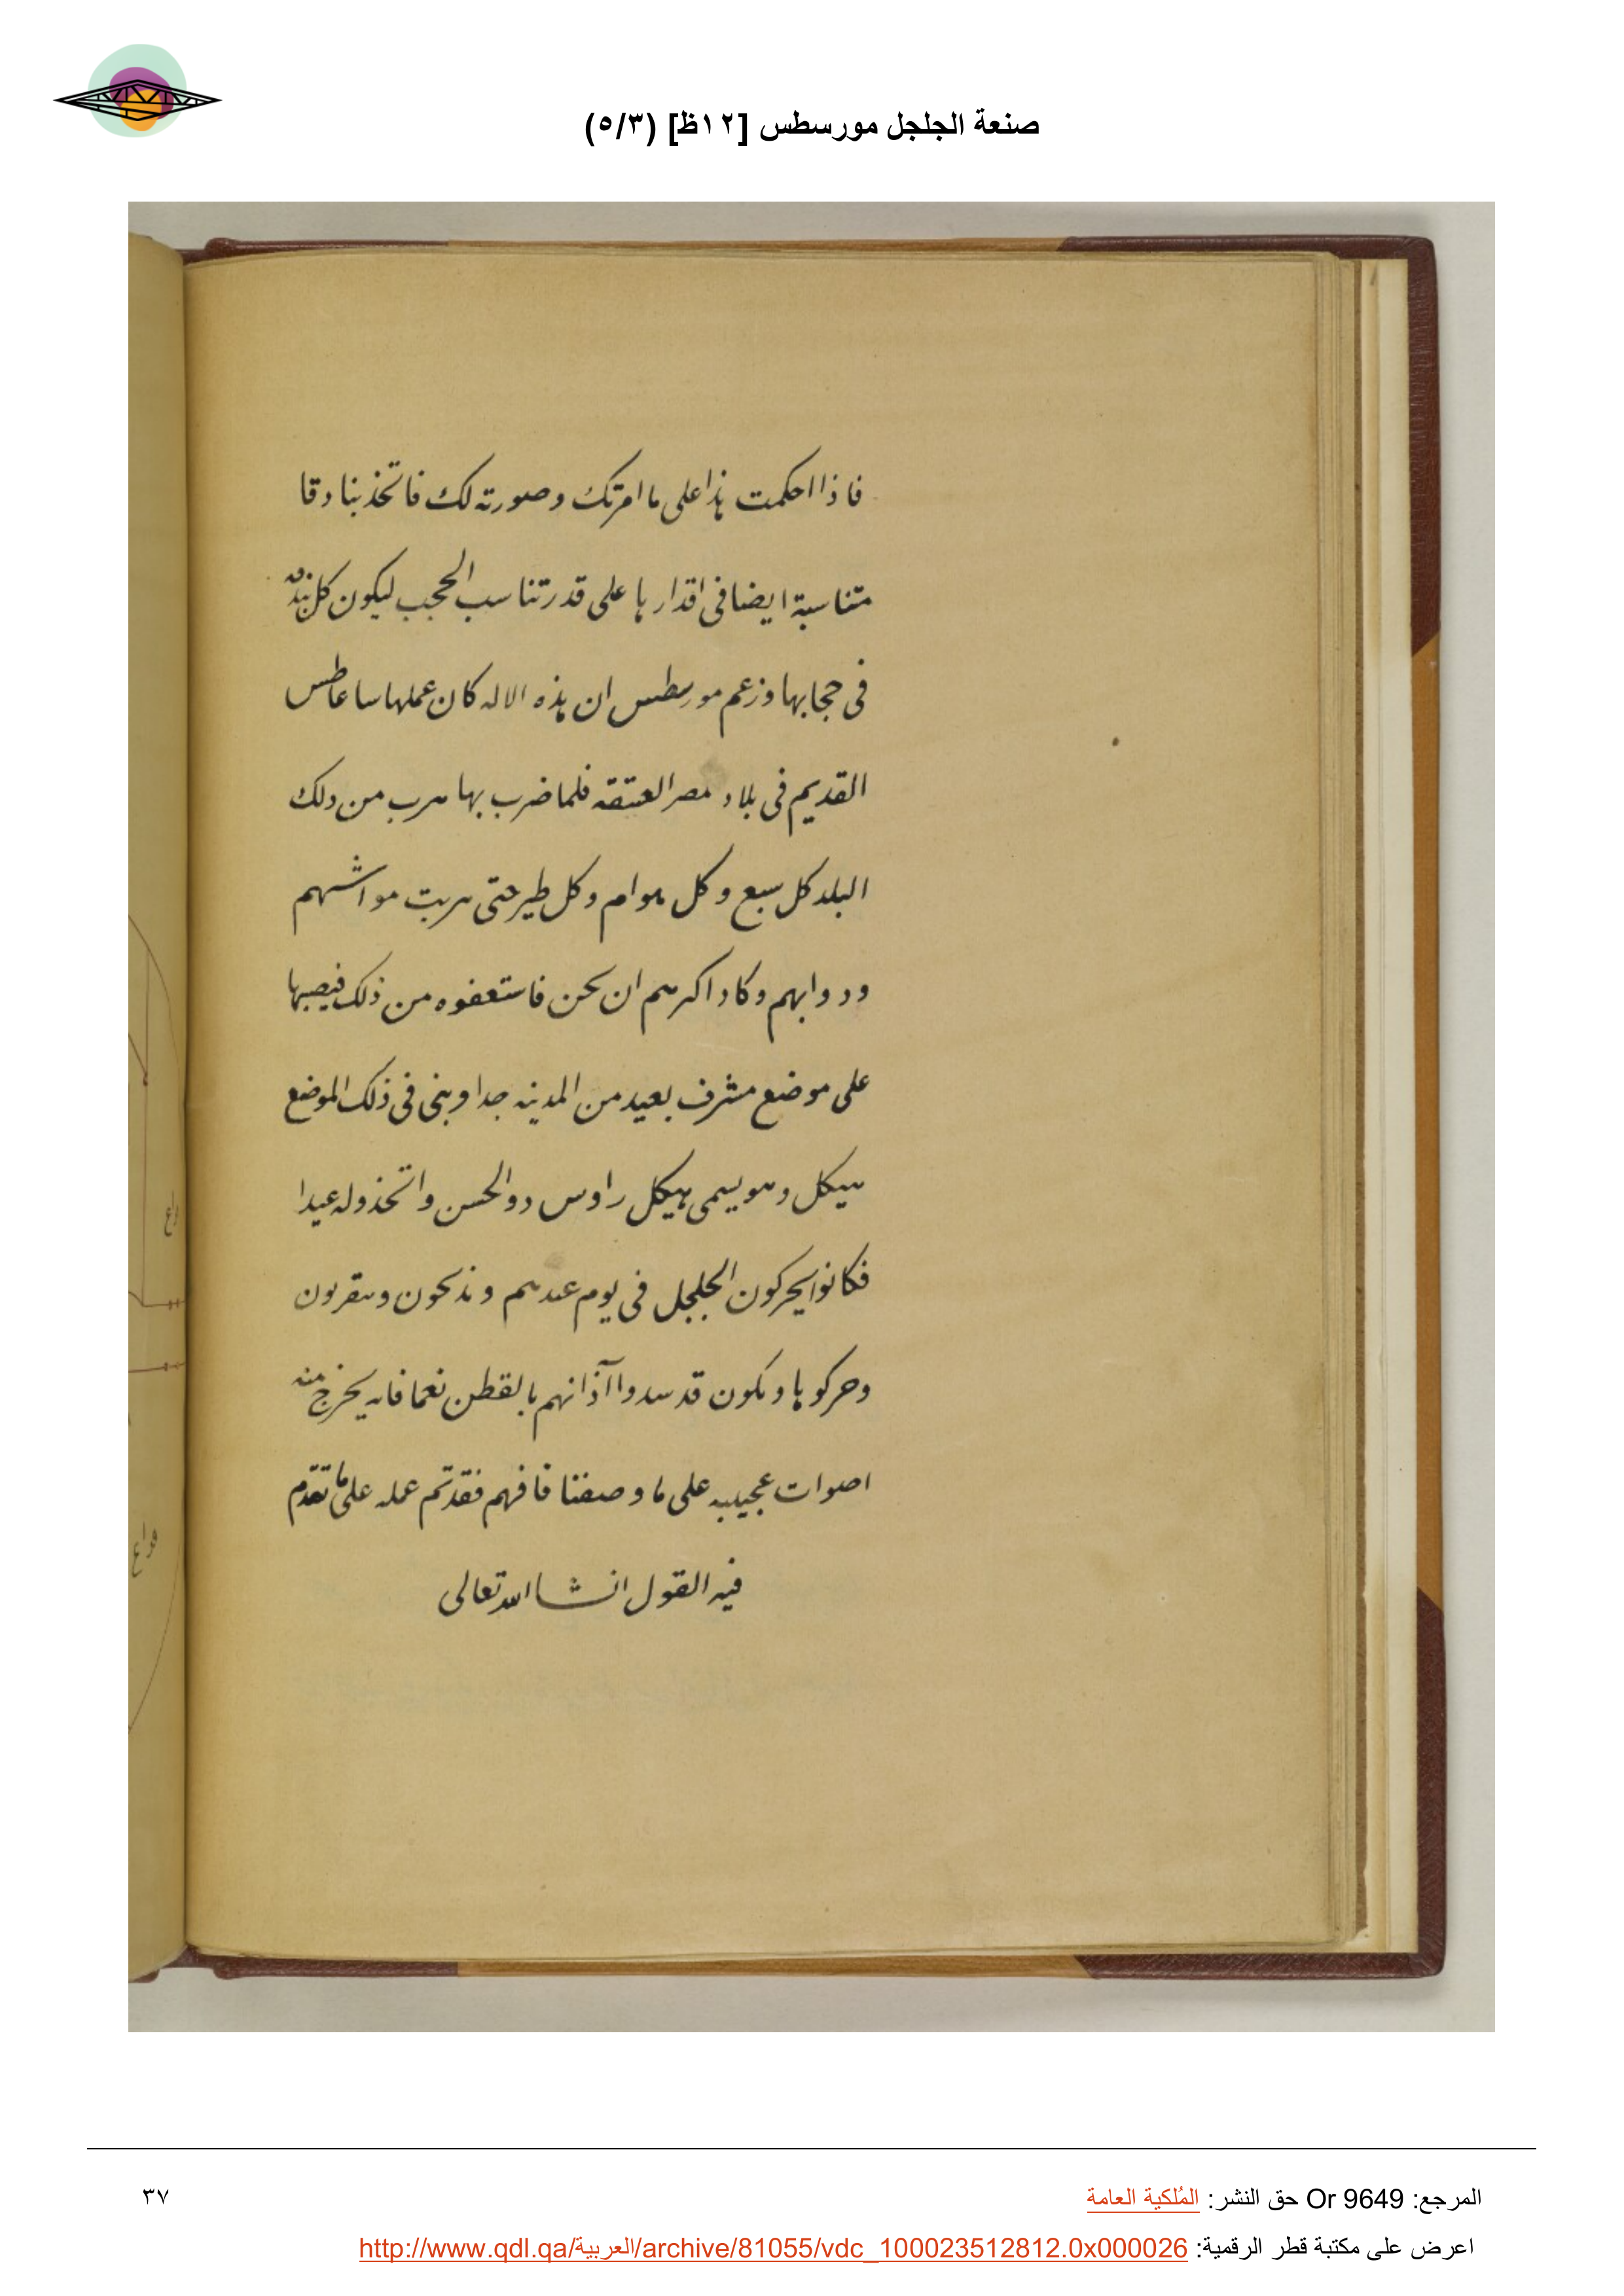 صنعة الجلجل مورسطس [١٢ظ] (٥/٣)
فاذا احكمت هذا على ما امرتك وصورته لك فاتخذ بنادقا
متناسبة ايضا فى اقدارها على قدر تناسب الحجب ليكون كل بندقه
فى حجابها وزعم مورسطس ان هذه الاله كان عملها ساعاطس
القديم فى بلاد مصر العتيقه فلما ضرب بها هرب من دلك
البلد كل سبع وكل هوام وكل طير حتى هربت مواشيهم
ودوابهم وكاد اكثرهم ان يحن فاستعفوه من ذلك فيصبها
على موضع مشرف بعيد من المدينه جدا وبنى فى ذلك الموضع
هيكل وهو يسمى هيكل راوس دوالحسن واتخذوله عيدا
فكانوا يحركون الجلجل فى يوم عيدهم ويذبحون ويتقربون
وحركوها ويكون قد سدوا آذانهم بالقطن نعما فانه يخرج منه
اصوات عجيبه على ما وصفنا فافهم فقد تم عمله على ما تقدم
فيه القول انشا الله تعالى
المرجع: Or 9649 حق النشر: المُلكية العامة
٣٧
اعرض على مكتبة قطر الرقمية: http://www.qdl.qa/العربية/archive/81055/vdc_100023512812.0x000026